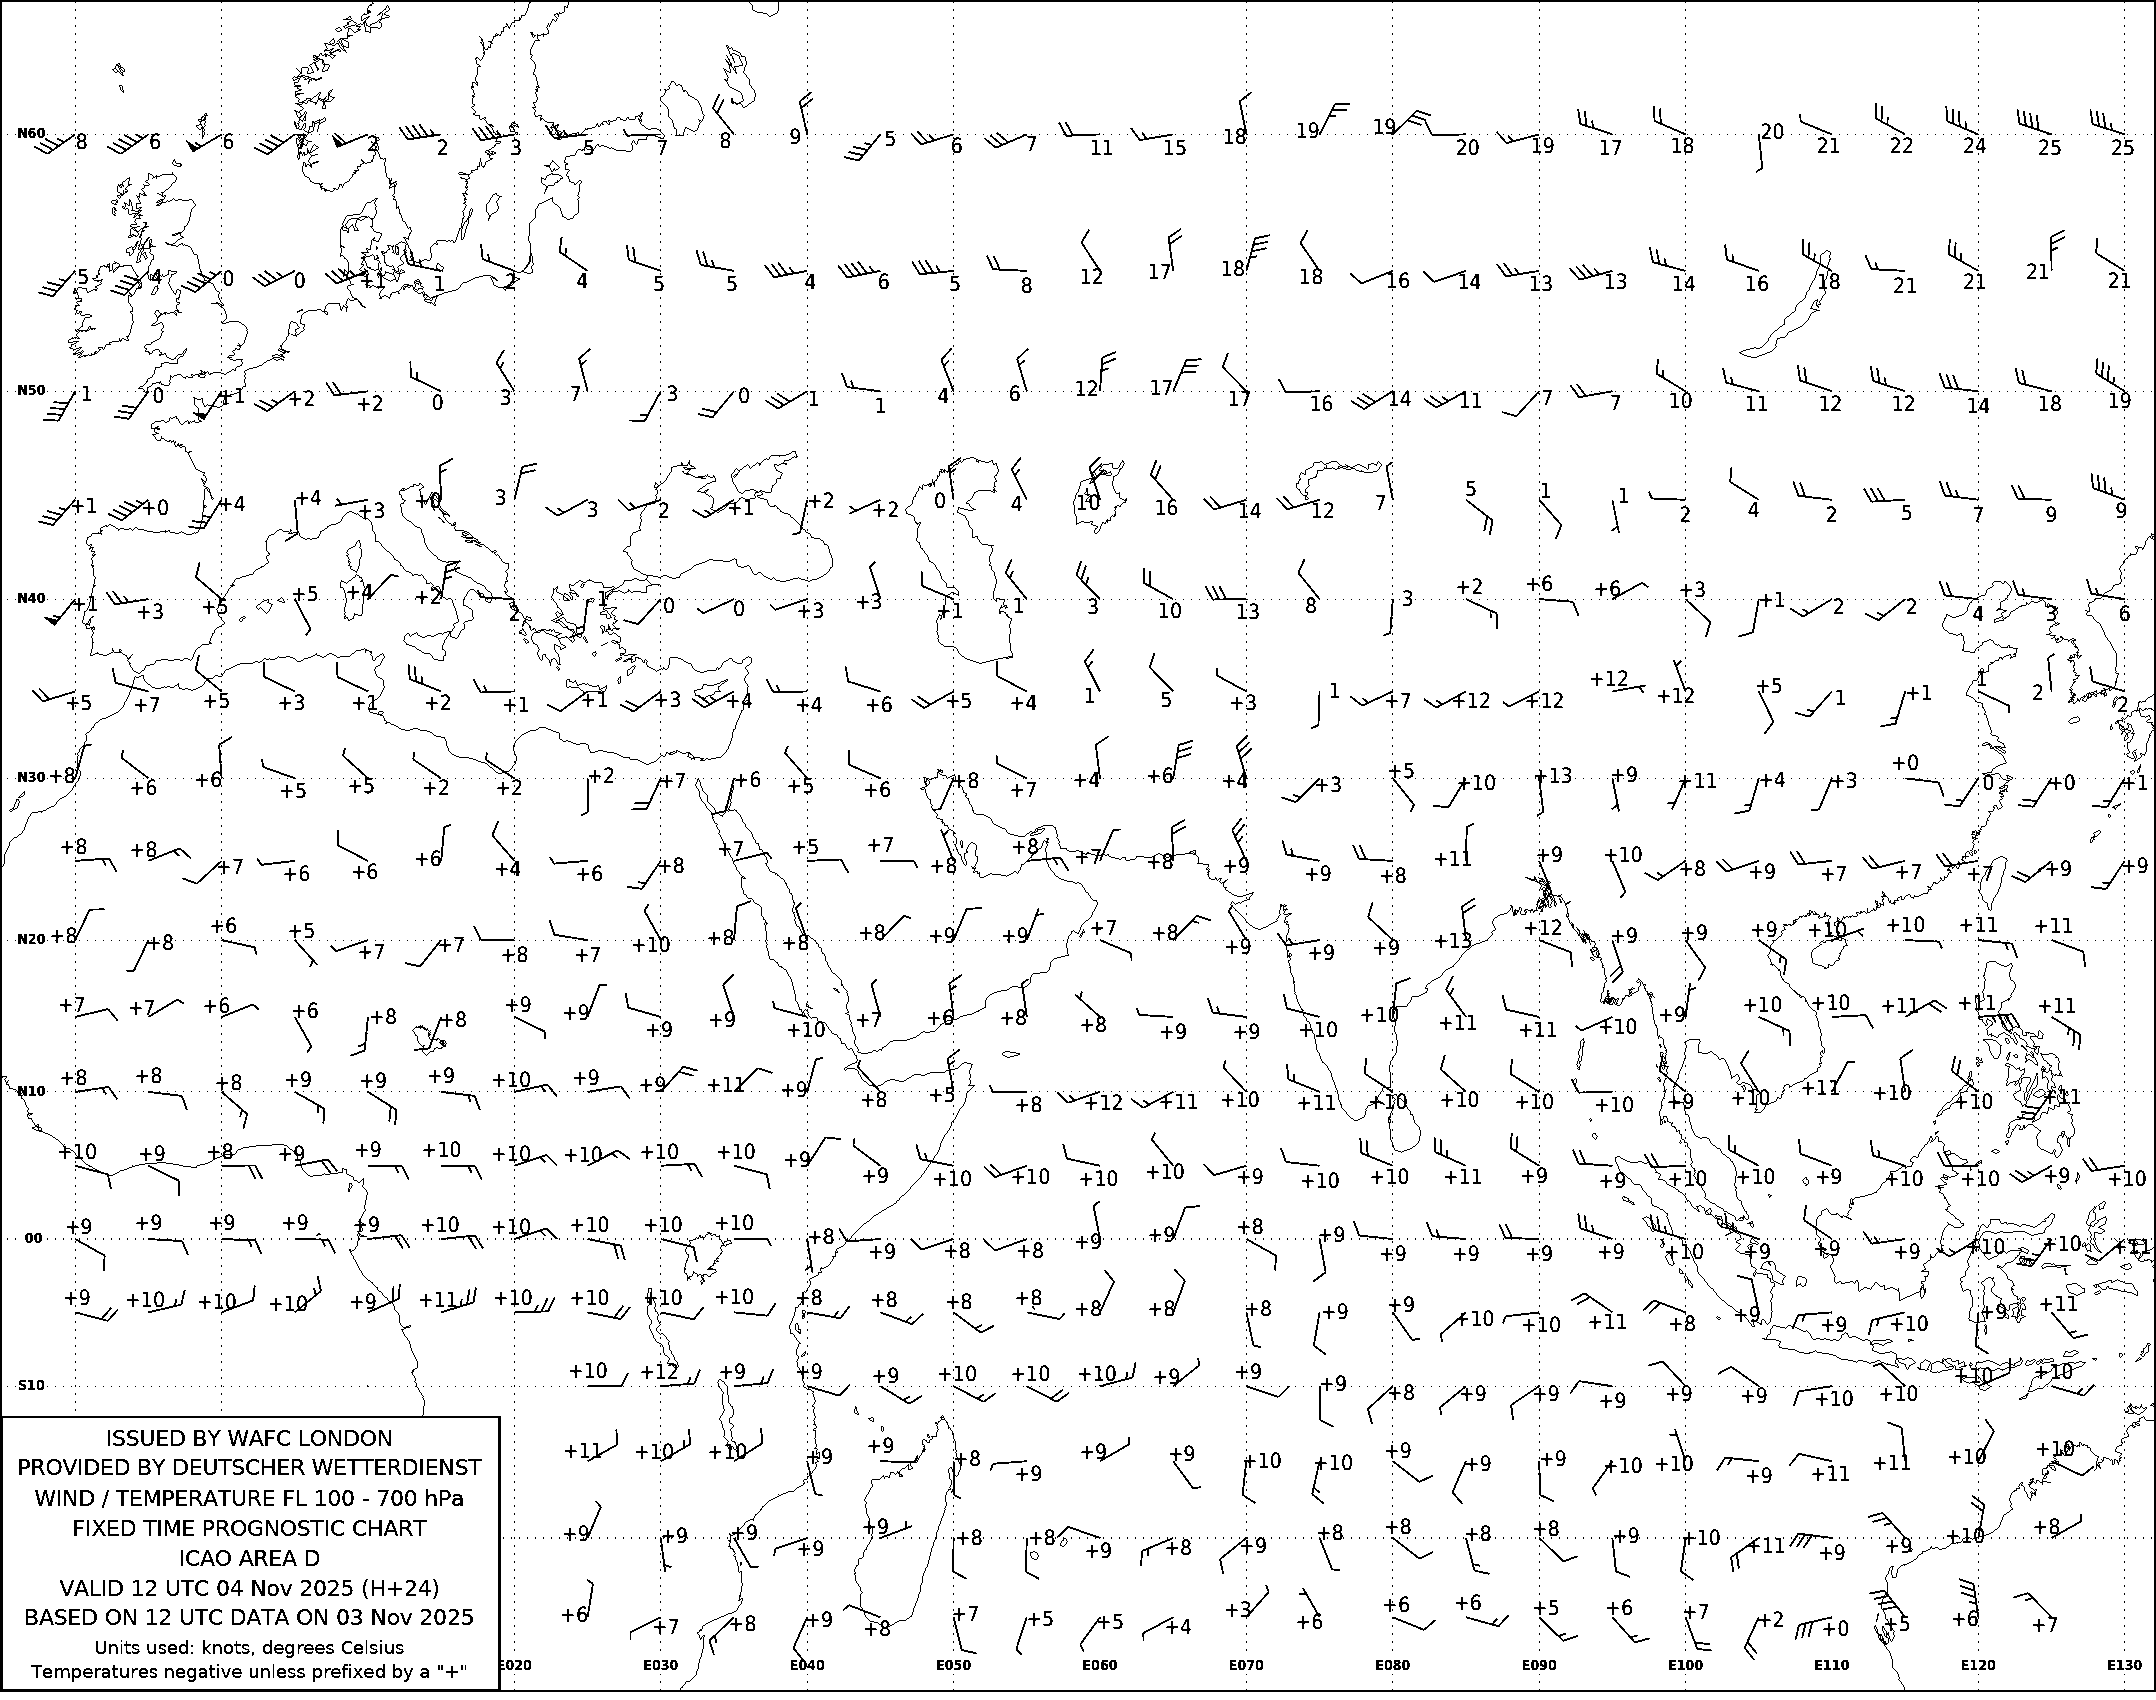 N60 8 6 6 2 2 3 5 7 8 9 5 6 7 11 15 18 19 19 20 19 17 18 20 21 22 24 25 25
5 4 0 0 +1 1 2 4 5 5 4 6 5 8 12 17 18 18 16 14 13 13 14 16 18 21 21 21 21
N50 1 0 +1 +2 +2 0 3 7 3 0 1 1 4 6 12 17 17 16 14 11 7 7 10 11 12 12 14 18 19
+1 +0 +4 +4 +3 +0 3 3 2 +1 +2 +2 0 4 10 16 14 12 7 5 1 1 2 4 2 5 7 9 9
N40 +1 +3 +5 +5 +4 +2 2 1 0 0 +3 +3 +1 1 3 10 13 8 3 +2 +6 +6 +3 +1 2 2 4 3 6
+5 +7 +5 +3 +1 +2 +1 +1 +3 +4 +4 +6 +5 +4 1 5 +3 1 +7 +12 +12 +12 +12 +5 1 +1 1 2 2
N30 +8 +6 +6 +5 +5 +2 +2 +2 +7 +6 +5 +6 +8 +7 +4 +6 +4 +3 +5 +10 +13 +9 +11 +4 +3 +0 0 +0 +1
+8 +8 +7 +6 +6 +6 +4 +6 +8 +7 +5 +7 +8 +8 +7 +8 +9 +9 +8 +11 +9 +10 +8 +9 +7 +7 +7 +9 +9
N20 +8 +8 +6 +5 +7 +7 +8 +7 +10 +8 +8 +8 +9 +9 +7 +8 +9 +9 +9 +13 +12 +9 +9 +9 +10 +10 +11 +11
+7 +7 +6 +6 +8 +8 +9 +9 +9 +9 +10 +7 +6 +8 +8 +9 +9 +10 +10 +11 +11 +10 +9 +10 +10 +11 +11 +11
N10 +8 +8 +8 +9 +9 +9 +10 +9 +9 +11 +9 +8 +5 +8 +12 +11 +10 +11 +10 +10 +10 +10 +9 +10 +11 +10 +10 +11
+10 +9 +8 +9 +9 +10 +10 +10 +10 +10 +9 +9 +10 +10 +10 +10 +9 +10 +10 +11 +9 +9 +10 +10 +9 +10 +10 +9 +10
00 +9 +9 +9 +9 +9 +10 +10 +10 +10 +10 +8 +9 +8 +8 +9 +9 +8 +9 +9 +9 +9 +9 +10 +9 +9 +9 +10 +10 +11
+9 +10 +10 +10 +9 +11 +10 +10 +10 +10 +8 +8 +8 +8 +8 +8 +8 +9 +9 +10 +10 +11 +8 +9 +9 +10 +9 +11
S10 +10 +12 +9 +9 +9 +10 +10 +10 +9 +9 +9 +8 +9 +9 +9 +9 +9 +10 +10 +10 +10
+11 +10 +10 +9 +9 +8 +9 +9 +9 +10 +10 +9 +9 +9 +10 +10 +9 +11 +11 +10 +10
+9 +9 +9 +9 +9 +8 +8 +9 +8 +9 +8 +8 +8 +8 +9 +10 +11 +9 +9 +10 +8
+6 +7 +8 +9 +8 +7 +5 +5 +4 +3 +6 +6 +6 +5 +6 +7 +2 +0 +5 +6 +7
E020 E030 E040 E050 E060 E070 E080 E090 E100 E110 E120 E130
ISSUED BY WAFC LONDON
PROVIDED BY DEUTSCHER WETTERDIENST
WIND / TEMPERATURE FL 100 - 700 hPa
FIXED TIME PROGNOSTIC CHART
ICAO AREA D
VALID 12 UTC 04 Nov 2025 (H+24)
BASED ON 12 UTC DATA ON 03 Nov 2025
Units used: knots, degrees Celsius
Temperatures negative unless prefixed by a "+"